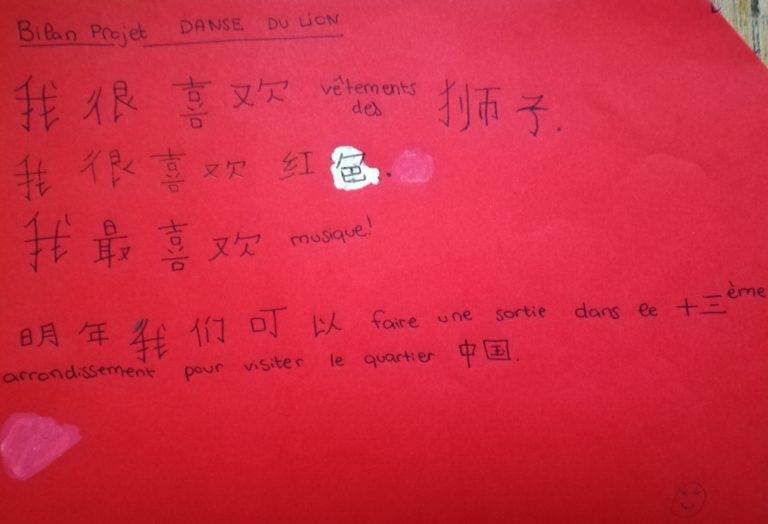 Bilan Projet DANSE DU LION
我 很 喜 欢 vêtements des 狮 子.
我 很 喜 欢 红 色.
我 最 喜 欢 musique!
明 年 我 们 可 以 faire une sortie dans le 十三ème
arrondissement pour visiter le quartier 中国.